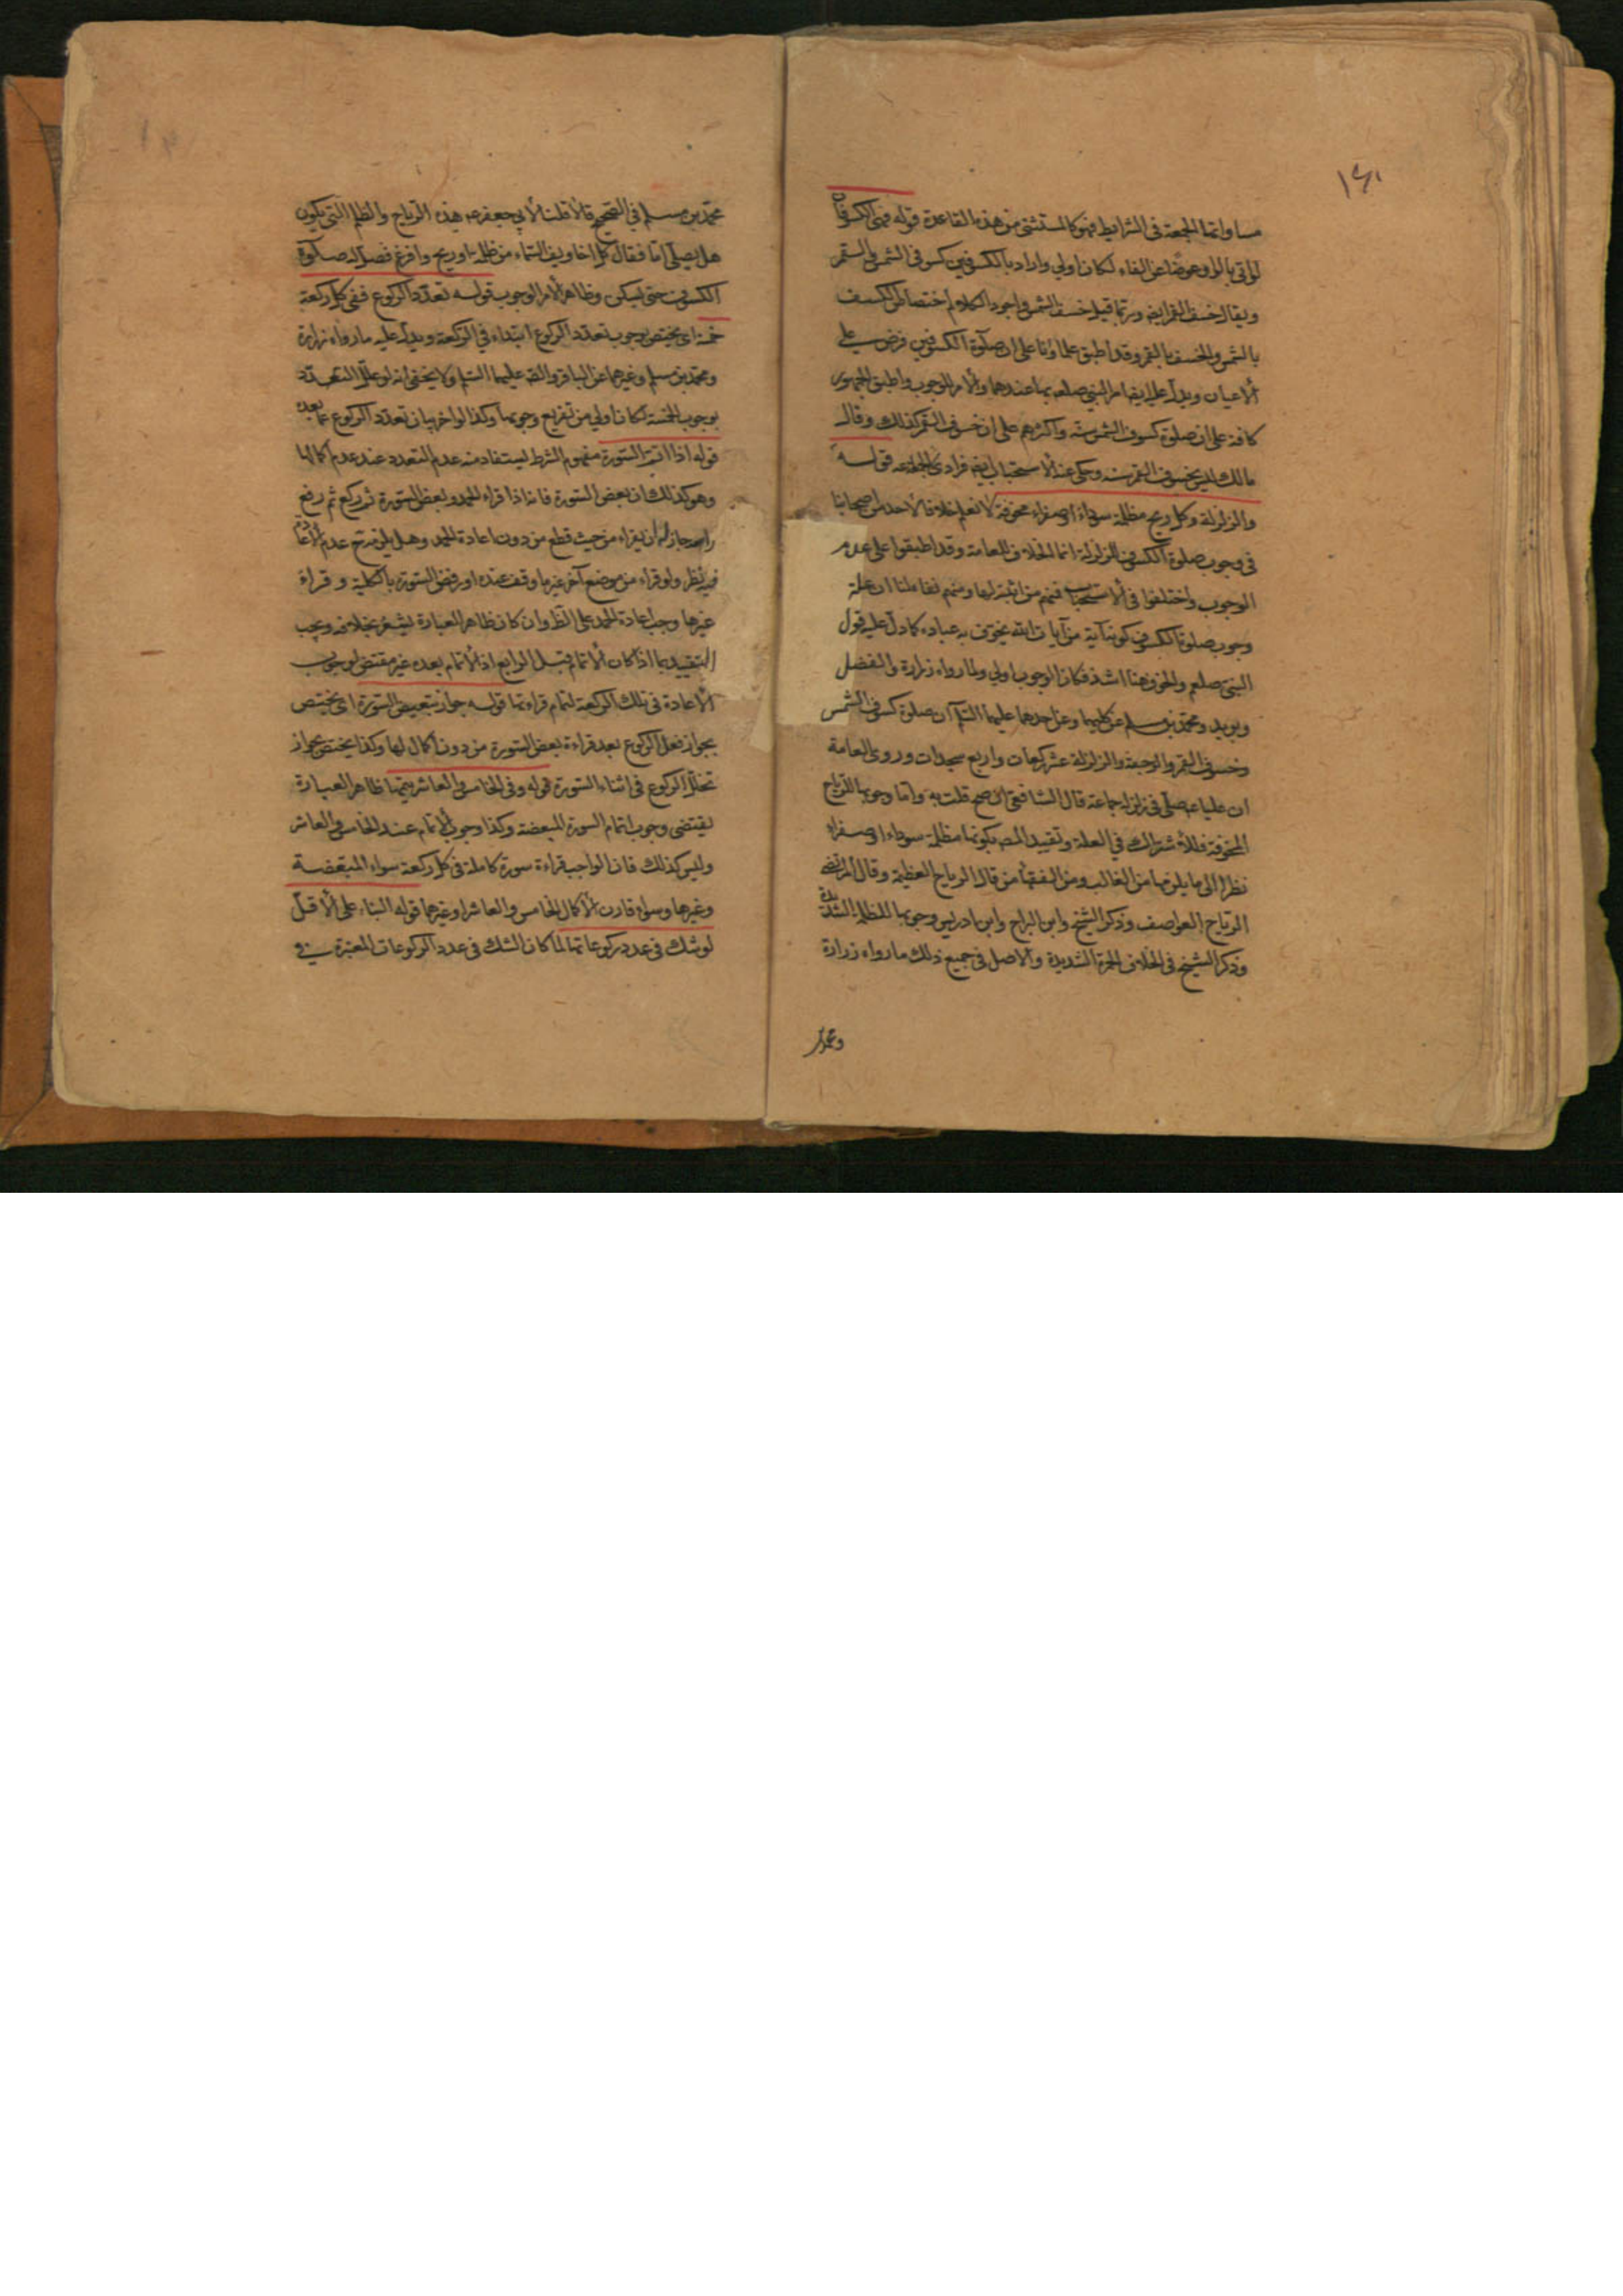 ١٤١
مساواتها الجمعة في الشرايط فهو كالمستثنى من هذه القاعدة قوله فمنها الكسوفان
لو اتى بالواو عوضًا عن الفاء لكان اولى واراد بالكسوفين كسوفي الشمس والقمر
ويقال خسف القمر ايضا وربما قيل خسف الشمس واجود الكلام اختصاص الكسف
بالشمس والخسف بالقمر وقد اطبق علماؤنا على ان صلوة الكسوفين فرض على
الاعيان ويدل عليه ايضا امر النبي صلعم بها عندهما والامر للوجوب واطبق الجمهور
كافة على ان صلوة كسوف الشمس سنة واكثرهم على ان خسوف القمر كذلك وقال
مالك ليس لخسوف القمر سنة وحكى عنه الاستحباب ايضا فرادى لا جماعة قوله
والزلزلة وكل ريح مظلمة سوداء او صفراء مخوفة لا نعلم خلافا لاحد من اصحابنا
في وجوب صلوة الكسوف للزلزلة انما الخلاف للعامة وقد اطبقوا على عدم
الوجوب واختلفوا في الاستحباب فمنهم من اثبته لها ومنهم نفاه لنا ان علة
وجوب صلوة الكسوف كونه آية من آيات الله يخوف به عباده كما دل عليه قول
النبي صلعم والخوف هنا اشد فكان الوجوب اولى ولما رواه زرارة والفضل
وبريد ومحمد بن مسلم عن كليهما وعن احدهما عليهما السلم ان صلوة كسوف الشمس
وخسوف القمر والرجفة والزلزلة عشر ركعات واربع سجدات وروى العامة
ان عليا ع صلى في زلزلة جماعة قال الشافعي ان صح قلت به واما وجوبها للرياح
المخوفة فللاشتراك في العلة وتقييد المصه بكونها مظلمة سوداء او صفراء
نظرا الى ما يلزمها من الغالب ومن الفقهاء من قال الرياح العظيمة وقال المرتضى
الرياح العواصف وذكر الشيخ وابن البراج وابن ادريس وجوبها للظلمة الشديدة
وذكر الشيخ في الخلاف الحمرة الشديدة والاصل في جميع ذلك ما رواه زرارة
ومحمد
محمد بن مسلم في الصحيح قالا قلنا لابي جعفر ع هذه الرياح والظلم التي يكون
هل يصلى لها فقال كل اخاويف السماء من ظلمة او ريح وافزع فصل له صلوة
الكسوف حتى يسكن وظاهر الامر الوجوب قوله تعدد الركوع ففي كل ركعة
خمسة اى يختص بوجوب تعدد الركوع ابتداء في الركعة ويدل عليه ما رواه زرارة
ومحمد بن مسلم وغيرهما عن الباقر والصه عليهما السلم ولا يخفى انه لو علل التعدد
بوجوب الخمسة لكان اولى من تفريع وجوبها وكذا لو اخر بيان تعدد الركوع عما بعده
قوله اذا اتم السورة مفهوم الشرط يستفاد منه عدم التعدد عند عدم اكمالها
وهو كذلك ان بعض السورة فانه اذا قراء الحمد وبعض السورة ثم ركع ثم رفع
راسه جاز له ان يقراء من حيث قطع من دون اعادة الحمد وهل يلزمه ح عدم الاعادة
فيه نظر ولو قراء من موضع آخر غير ما وقف عنده او رفض السورة بالكلية وقراء
غيرها وجب اعادة الحمد على الظ وان كان ظاهر العبارة يشعر بخلافه ويجب
التقييد بما اذا كان الاتمام قبل الرابع اذ الاتمام بعده غير مقتض لوجوب
الاعادة في تلك الركعة لتمام قراءتها قوله جواز تبعيض السورة اى يختص
بجواز فعل الركوع بعد قراءة بعض السورة من دون اكمال لها وكذا يختص بجواز
تخلل الركوع في اثناء السورة قوله وفي الخامس والعاشر يتمها ظاهر العبارة
يقتضى وجوب اتمام السورة المبعضة وكذا وجوب الاتمام عند الخامس والعاشر
وليس كذلك فان الواجب قراءة سورة كاملة في كل ركعة سواء المبتعضة
وغيرها وسواء قارن الاكمال الخامس والعاشر او غيرهما قوله البناء على الاقل
لو شك في عدد ركوعاتها لما كان الشك في عدد الركوعات المعتبرة في